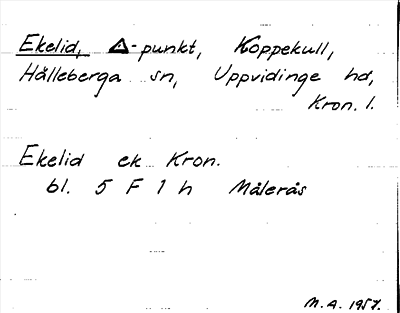 Ekelid, △-punkt, Koppekull,
Hälleberga sn, Uppvidinge hd,
Kron. l.
Ekelid ek Kron.
bl. 5 F 1 h Målerås
M. A. 1957.